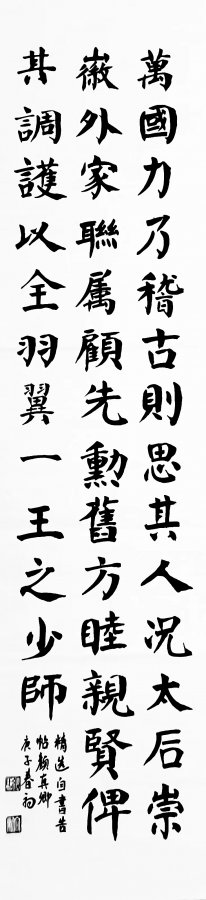 萬國力乃稽古則思其人況太后崇
徽外家聯属顧先勳舊方睦親賢俾
其調護以全羽翼一王之少師
精選自書告
帖顏真卿
庚子春初